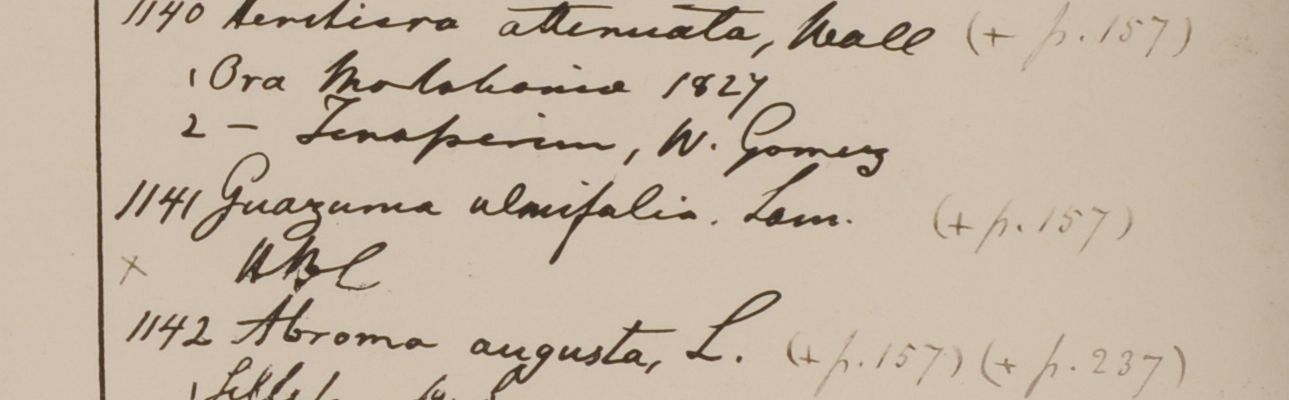 1140 Heritiera attenuata, Wall (+ p. 157)
1 Ora 1827
2 - Tenasserim, W. Gomez
1141 Guazuma ulmifolia. Lam. (+ p. 157)
x HBC
1142 Abroma augusta, L. (+ p. 157) (+ p. 237)
1